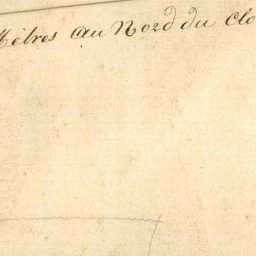 Mètres au Nord du Clo